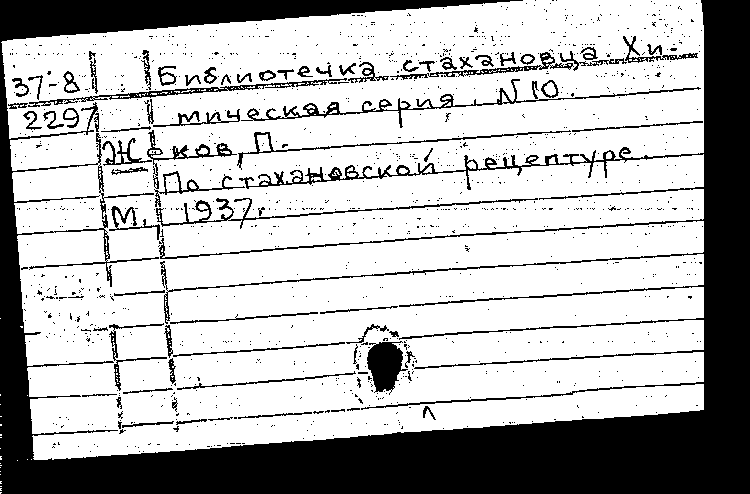 37-8 Библиотечка стахановца. Хи-
2297 мическая серия. N 10.
Жеков, П.
По стахановской рецептуре.
М. 1937г.